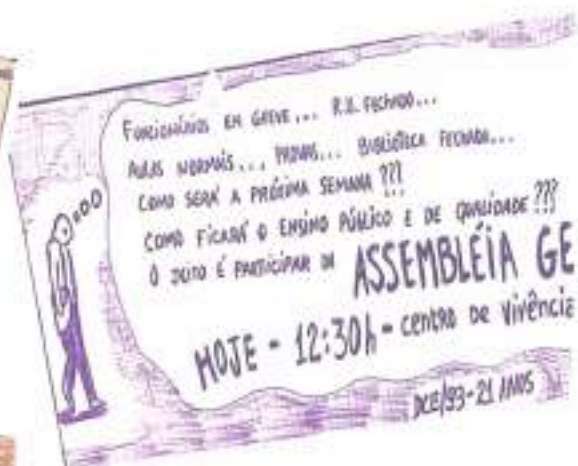 FUNCIONÁRIOS EM GREVE... R.U. FECHADO...
AULAS NORMAIS... PROVAS... BIBLIOTECA FECHADA...
COMO SERÁ A PRÓXIMA SEMANA ???
COMO FICARÁ O ENSINO PÚBLICO E DE QUALIDADE ???
O JEITO É PARTICIPAR DA ASSEMBLÉIA GE
HOJE - 12:30h - CENTRO DE VIVÊNCIA
DCE/93-21 ANOS